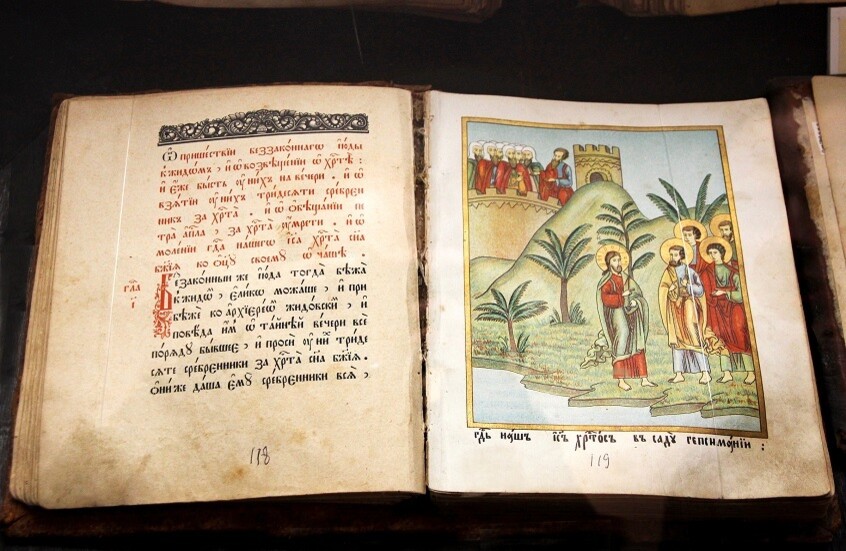 Ѡ пришествїи беззаконнагѡ їюды
к жидѡмъ , и ѡ возвѣщенїи ѡ хр҃тѣ :
и еже бысть ѹ нихъ на вечери . и ѡ
взятїи ѹ нихъ тридесяти сребрен
никъ за хр҃та . и ѡ ѡбѣщанїи пе
тра ап҃ла , за хр҃та ѹмрети . и ѡ
моленїи гд҃а нашегѡ їс҃а хр҃та сн҃а
бж҃їя ко ѻц҃ѹ своемѹ ѡ чашѣ .
гла
і
Беззаконный же їюда тогда бѣжа
к жидѡ , елікѡ можаше , и при
бѣже ко архїереѡ жидовскй , и
повѣда им ѡ тайнѣй вечери всѐ
порядѹ бывшее , и проси ѹ ни триде
сяте сребренники за хр҃та сн҃а бж҃їя .
они же даша емѹ сребренники вся ,
118
гд҃ь нашъ їс҃ъ хр҃тосъ въ садѹ геѳсиманїи :
119